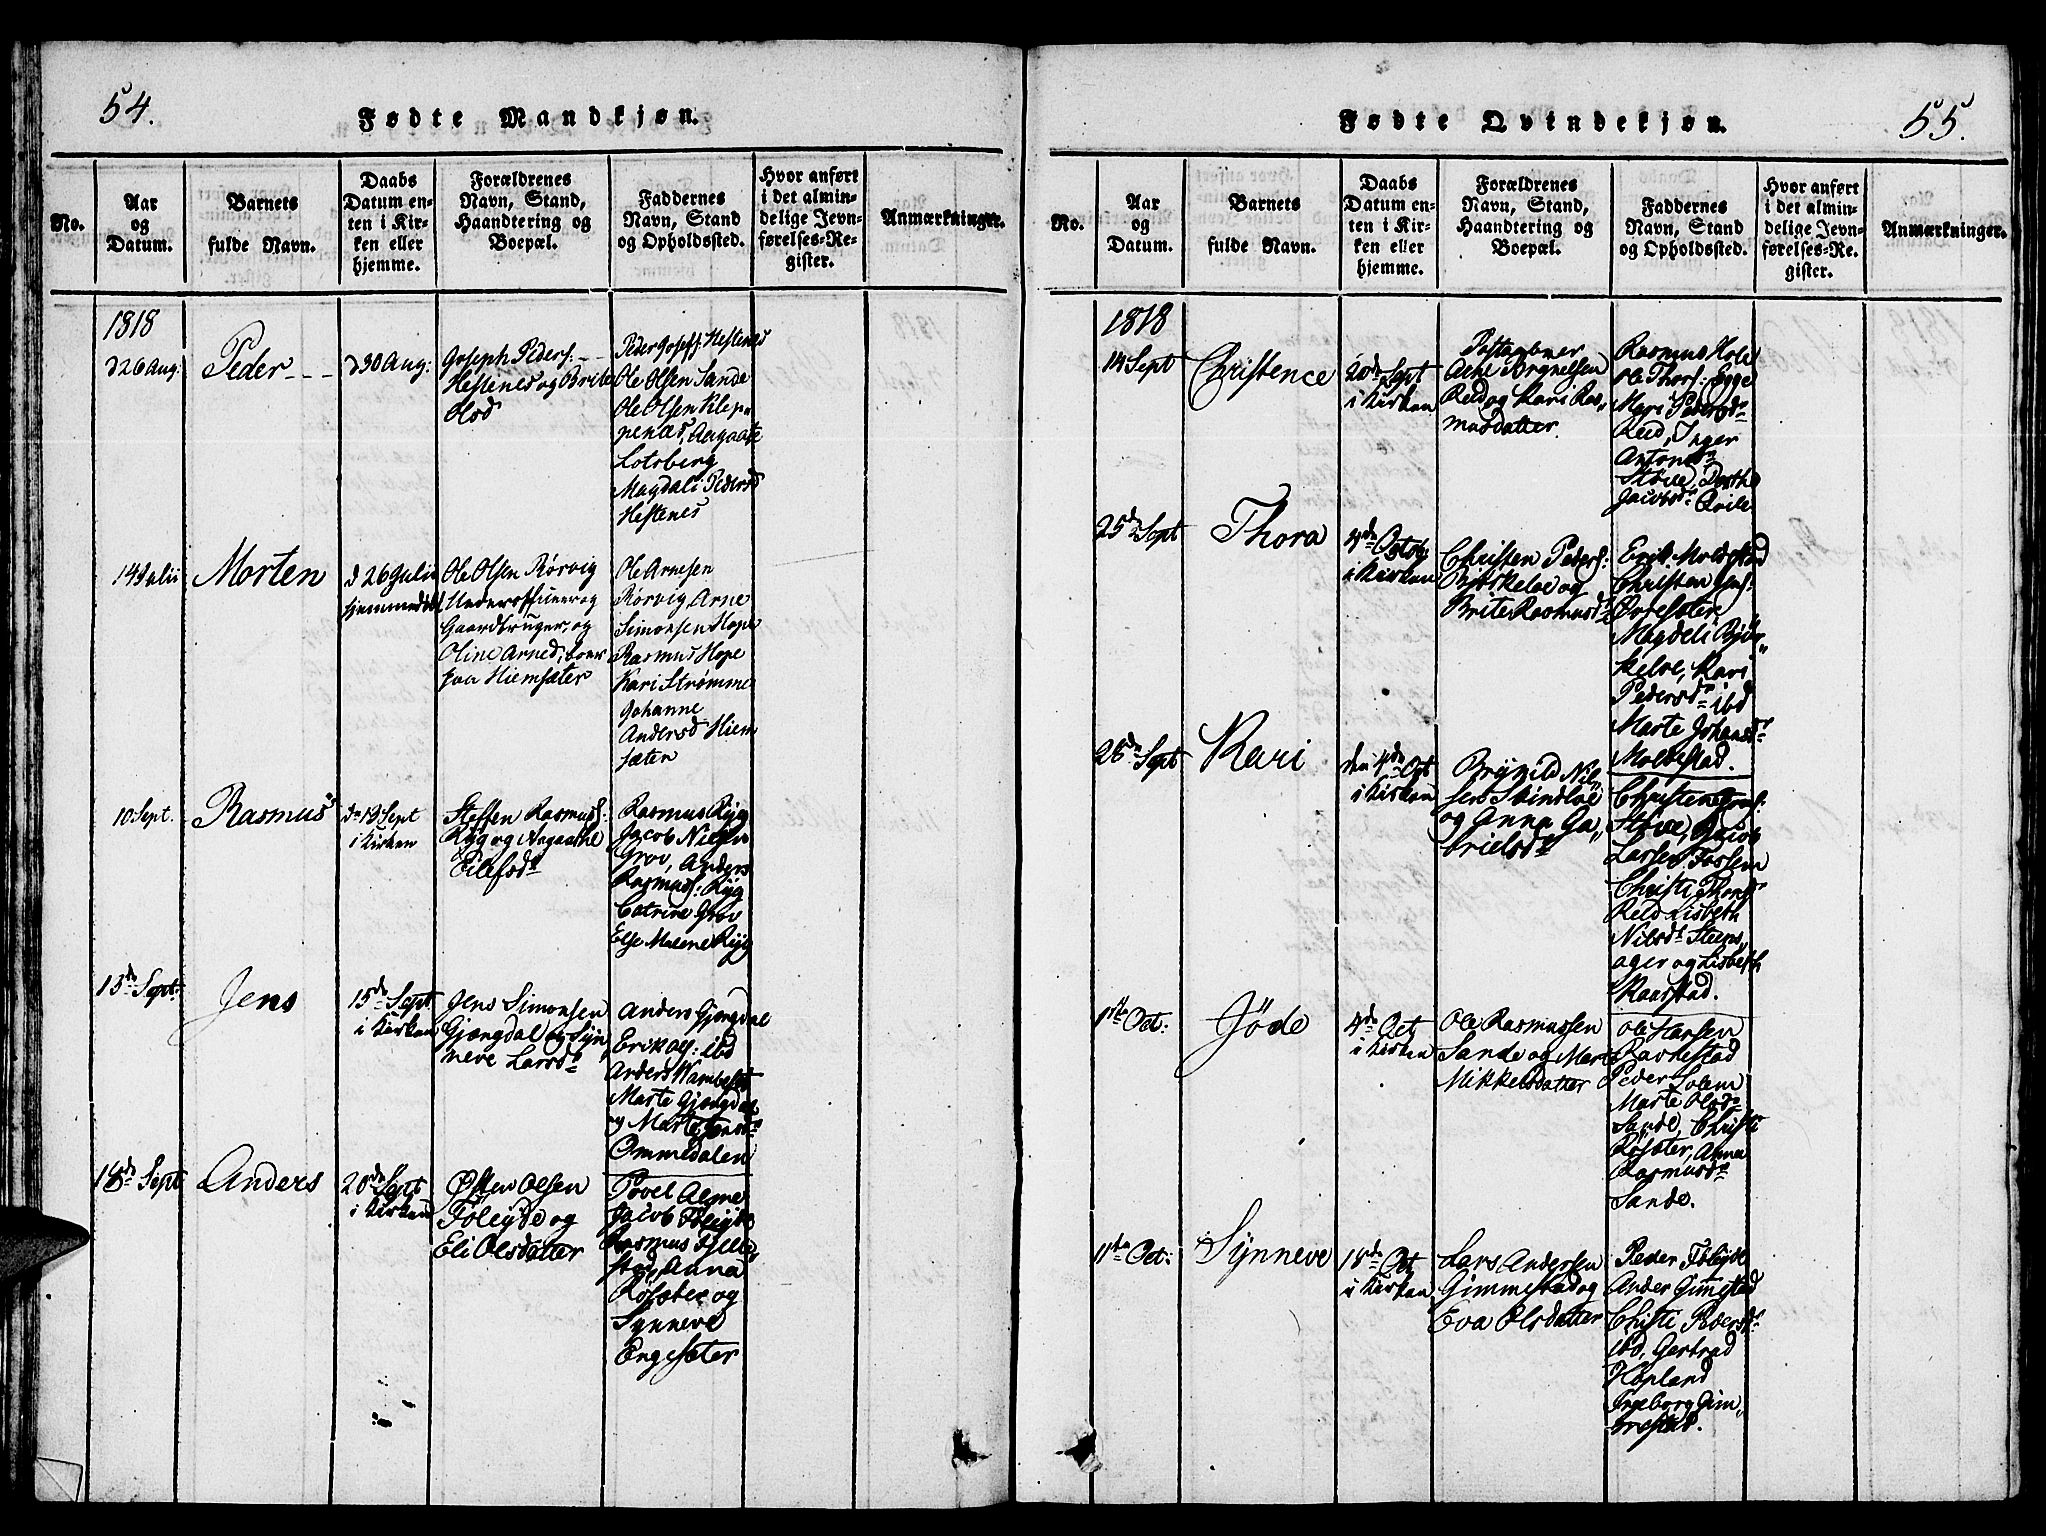 54.
Fødte Mandkjøn.
No.
Aar
og
Datum.
Barnets
fulde Navn.
Daabs
Datum en-
ten i Kir-
ken eller
hjemme.
Forældrenes
Navn, Stand,
Haandtering og
Boepæl.
Faddernes
Navn, Stand
og Opholdssted.
Hvor anført
i det almin-
delige Jevn-
førelses-Re-
gister.
Anmærkninger.
1818
d 26 Aug:
Peder
d 30 Aug:
Joseph Peders:
Hestenes og Brite
Olsd
Peder Joseph Hestenes
Ole Olsen Sande
Ole Olsen Klep„
penæs, Aagaate
Lotsberg
Magdali Pedersd
Hestenes
14 Julii
Morten
d 26 Julii
hjemmedøbt
Ole Olsen Rørvig
Underofficeer og
Gaardbruger, og
Oline Arnesd, boer
paa Hiemsæter
Ole Arnesen
Rørvig Arne
Simonsen Hope
Rasmus Hope
Kari Strømme
Johanne
Andersd Hiem
sæter
10 Sept.
Rasmus
i Kirken
Steffen Rasmuss:
Ryg og Aagaathe
Eilefsdr
Rasmus Ryg
Jacob Nielsen
Grov, Anders
Rasmuss: Ryg
Catrine Grov
Else Malene Ryg
15de Sept:
Jens
15de Sept
i Kirken
Jens Simonsen
Gjængdal og Syn
neve Larsdr
Anders Gjængdal
Erik Ols: ibd
Anders
Marte Gjængdal
og Marte Jensdr
Ommedalen
18de Sept
Anders
20de Sept
i Kirken
Østen Olsen
Føleyde og
Eli Olsdatter
Povel Alme
Jacob Føleyde
Rasmus Fjelle„
stad, Anna
Røsæter og
Synneve
Engesæter
55.
Fødte Qvindekjøn.
No.
Aar
og
Datum.
Barnets
fulde Navn.
Daabs
Datum en-
ten i Kir-
ken eller
hjemme.
Forældrenes
Navn, Stand,
Haandtering og
Boepæl.
Faddernes
Navn, Stand
og Opholdssted.
Hvor anført
i det almin-
delige Jevn-
førelses-Re-
gister.
Anmærkninger.
1818
14 Sept
Christence
20de Sept
i Kirken
Reed og Kari Ras„
musdatter
Rasmus Hole
Ole Thors: Egge
Mari Pedersdr
Reed, Inger
Antonsdr
Støve, Dorthe
Jacobsdr
25de Sept
Thora
4de Octob
i Kirken
Christen Peders:
Bjørkeloe og
Brite Rasmusdr
Christen Jens:
Øvresæter
Magdeli Bjør„
keloe, Kari
Pedersdr ibd
Marte Johansdr
Moldestad.
28de Sept
Kari
den 4de Oct
i Kirken
Brynild Niel„
sen Skindloe
og Anna Ga„
brielsdr
Christen Jens:
Støve, Jacob
Larsen Fossem
Christi Thorsdr
Reed Lisbeth
Nilsdr Steens„
ager og Lisbeth
Kaarstad.
1ste Oct:
Jøde
4de Oct
i Kirken
Ole Rasmussen
Sande og Mari
Mikkelsdatter
Ole Hansen
Ravnestad
Peder Solem
Marte Olsdr
Sande, Christi
Røsæter, Anna
Rasmusdr
Sande.
11te Oct:
Synneve
18de Oct
i Kirken
Lars Andersen
Gimmestad og
Eva Olsdatter
Peder Føleyde
Ander Gimestad
Christi Pedersdr
ibd, Gertrud
Hopland
Ingeborg Gim„
mestad.